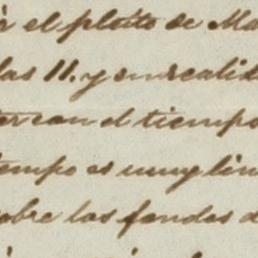 el pluto de Ma
las 11. y en realid
con el tiempo
tempo es muy lin
sobre las fondas d